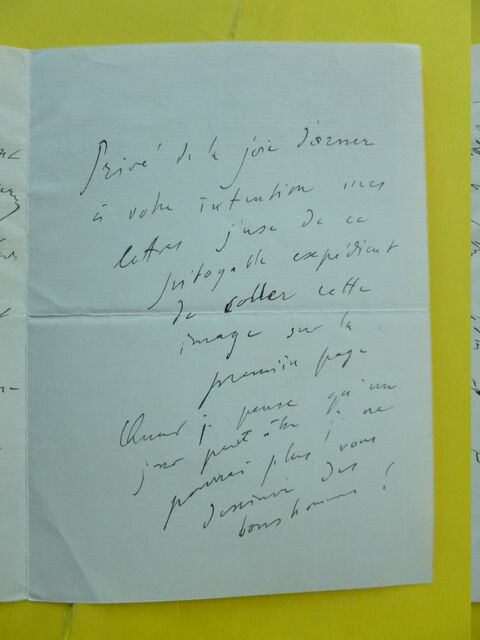 Privé de la joie d'orner
à votre intention mes
lettres j'use de ce
pitoyable expédient
de coller cette
image sur la
première page
Quand je pense qu'un
jour peut être je ne
pourrai plus vous
dessiner des
bons hommes !